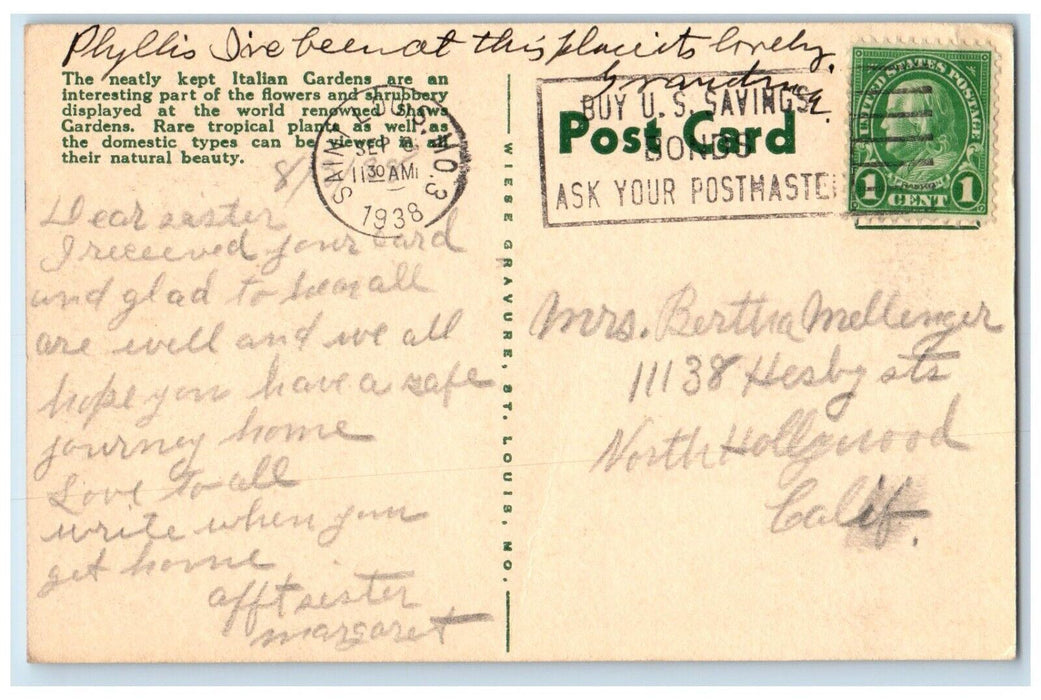 Phyllis I've been at this place its lovely.
Grandma
The neatly kept Italian Gardens are an
interesting part of the flowers and shrubbery
displayed at the world renowned Shaws
Gardens. Rare tropical plants as well as
the domestic types can be viewed in all
their natural beauty.
SAINT LOUIS, MO. 3
SEP
11 30 AM
1938
BUY U.S. SAVINGS
BONDS
ASK YOUR POSTMASTER
Post Card
UNITED STATES POSTAGE
FRANKLIN
1 CENT 1
Dear sister
I received your card
and glad to hear all
are well and we all
hope you have a safe
journey home
Love to all
write when you
get home
afft sister
margaret
WIESE GRAVURE, ST. LOUIS, MO.
Mrs. Bertha Mellenger
11138 Hesby sts
North Hollywood
Calif.